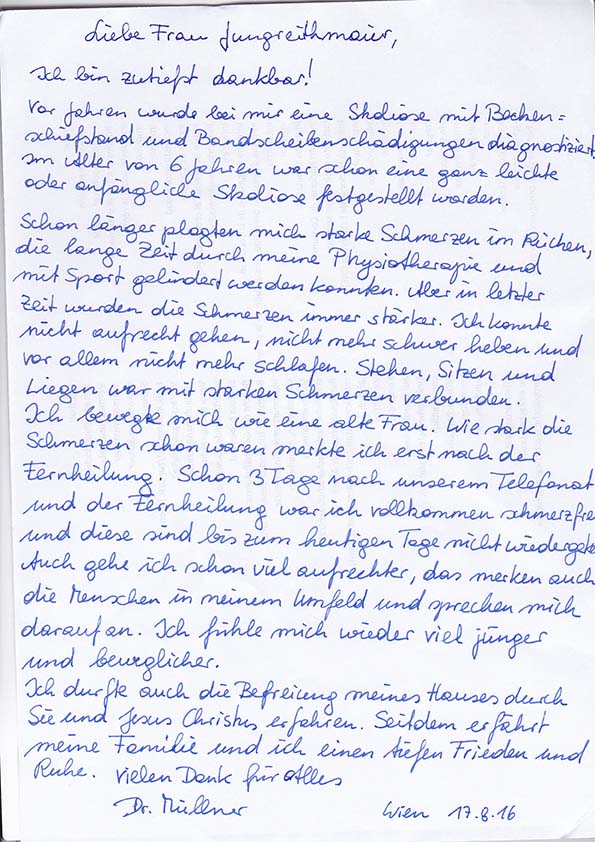 Liebe Frau Jungreithmaier,
Ich bin zutiefst dankbar!
Vor Jahren wurde bei mir eine Skoliose mit Becken=
schiefstand und Bandscheibenschädigungen diagnostiziert.
Im Alter von 6 Jahren war schon eine ganz leichte
oder anfängliche Skoliose festgestellt worden.
Schon länger plagten mich starke Schmerzen im Rücken,
die lange Zeit durch meine Physiotherapie und
mit Sport gelindert werden konnten. Aber in letzter
Zeit wurden die Schmerzen immer stärker. Ich konnte
nicht aufrecht gehen, nicht mehr schwer heben und
vor allem nicht mehr schlafen. Stehen, Sitzen und
Liegen war mit starken Schmerzen verbunden.
Ich bewegte mich wie eine alte Frau. Wie stark die
Schmerzen schon waren merkte ich erst nach der
Fernheilung. Schon 3 Tage nach unserem Telefonat
und der Fernheilung war ich vollkommen schmerzfre
und diese sind bis zum heutigen Tage nicht wiederge
Auch gehe ich schon viel aufrechter, das merken auch
die Menschen in meinem Umfeld und sprechen mich
darauf an. Ich fühle mich wieder viel jünger
und beweglicher.
Ich durfte auch die Befreiung meines Hauses durch
Sie und Jesus Christus erfahren. Seitdem erfährt
meine Familie und ich einen tiefen Frieden und
Ruhe. Vielen Dank für Alles
Dr. Müllner Wien 17.8.16